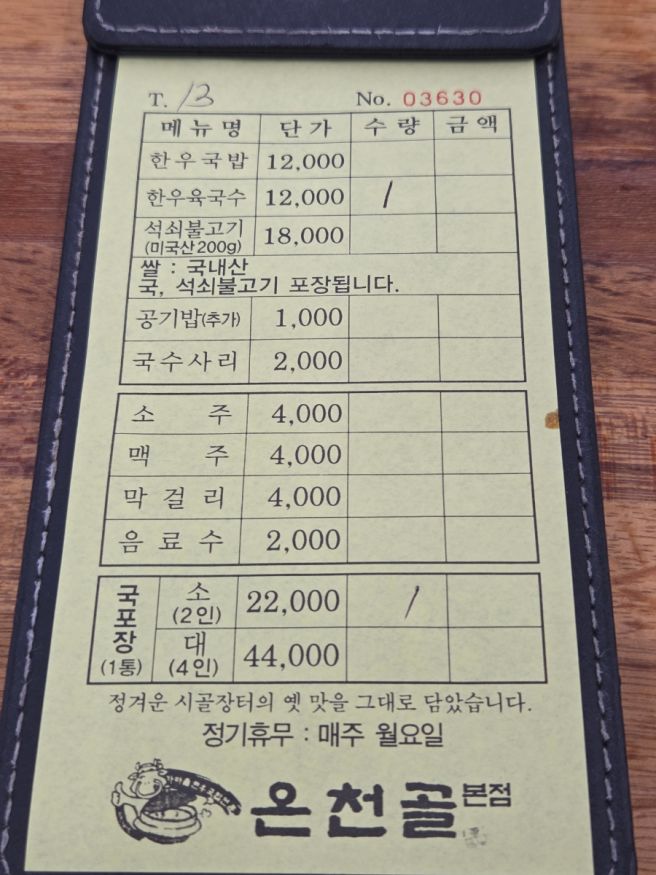 T. 13 No. 03630
메뉴명 단가 수량 금액
한우국밥 12,000
한우육국수 12,000 /
석쇠불고기 18,000
(미국산200g)
쌀 : 국내산
국, 석쇠불고기 포장됩니다.
공기밥(추가) 1,000
국수사리 2,000
소 주 4,000
맥 주 4,000
막걸리 4,000
음료수 2,000
국포장 (1통)
소 (2인) 22,000 /
대 (4인) 44,000
정겨운 시골장터의 옛 맛을 그대로 담았습니다.
정기휴무 : 매주 월요일
온천골 본점